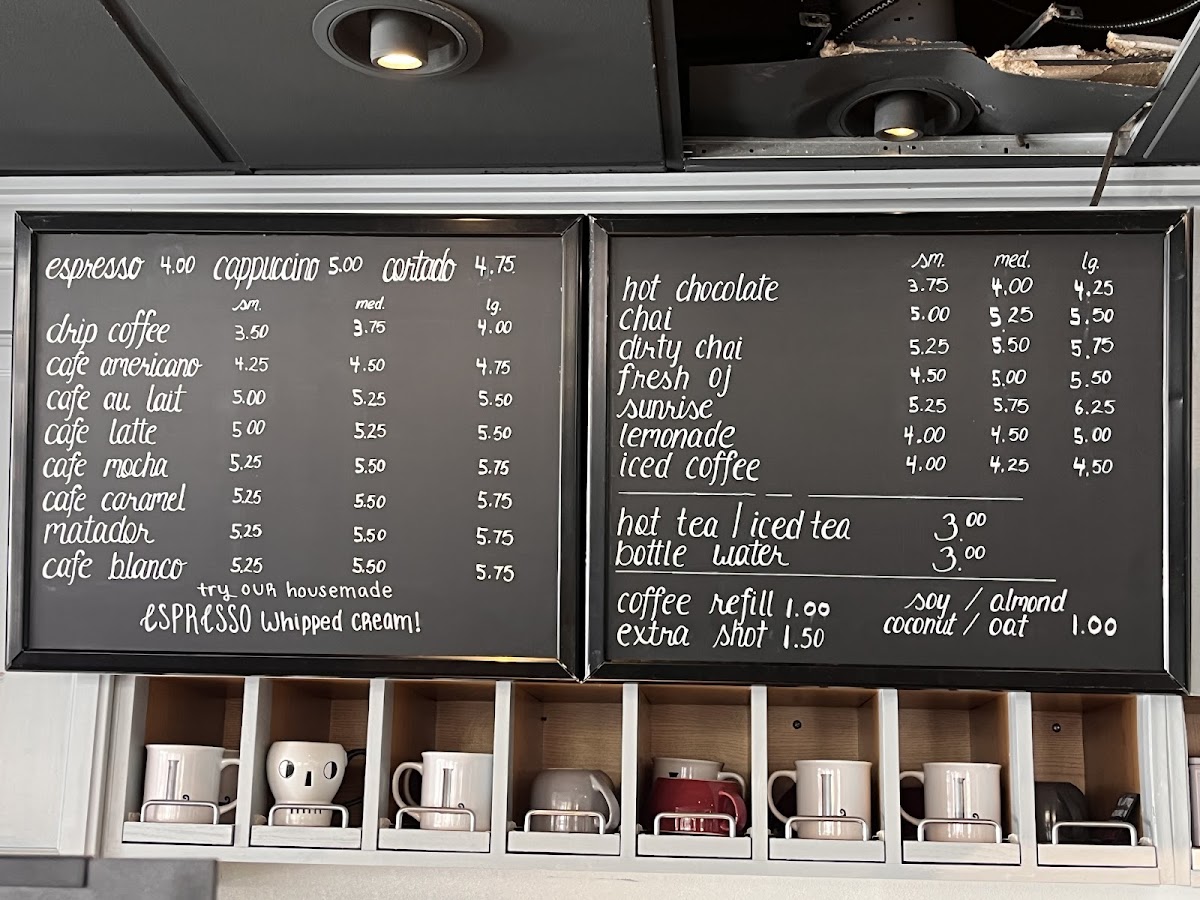 espresso 4.00 cappuccino 5.00 cortado 4.75
sm. med. lg.
drip coffee 3.50 3.75 4.00
cafe americano 4.25 4.50 4.75
cafe au lait 5.00 5.25 5.50
cafe latte 5.00 5.25 5.50
cafe mocha 5.25 5.50 5.75
cafe caramel 5.25 5.50 5.75
matador 5.25 5.50 5.75
cafe blanco 5.25 5.50 5.75
try our housemade
ESPRESSO Whipped cream!
sm. med. lg.
hot chocolate 3.75 4.00 4.25
chai 5.00 5.25 5.50
dirty chai 5.25 5.50 5.75
fresh oj 4.50 5.00 5.50
sunrise 5.25 5.75 6.25
lemonade 4.00 4.50 5.00
iced coffee 4.00 4.25 4.50
hot tea / iced tea 3.00
bottle water 3.00
coffee refill 1.00
extra shot 1.50
soy / almond
coconut / oat 1.00